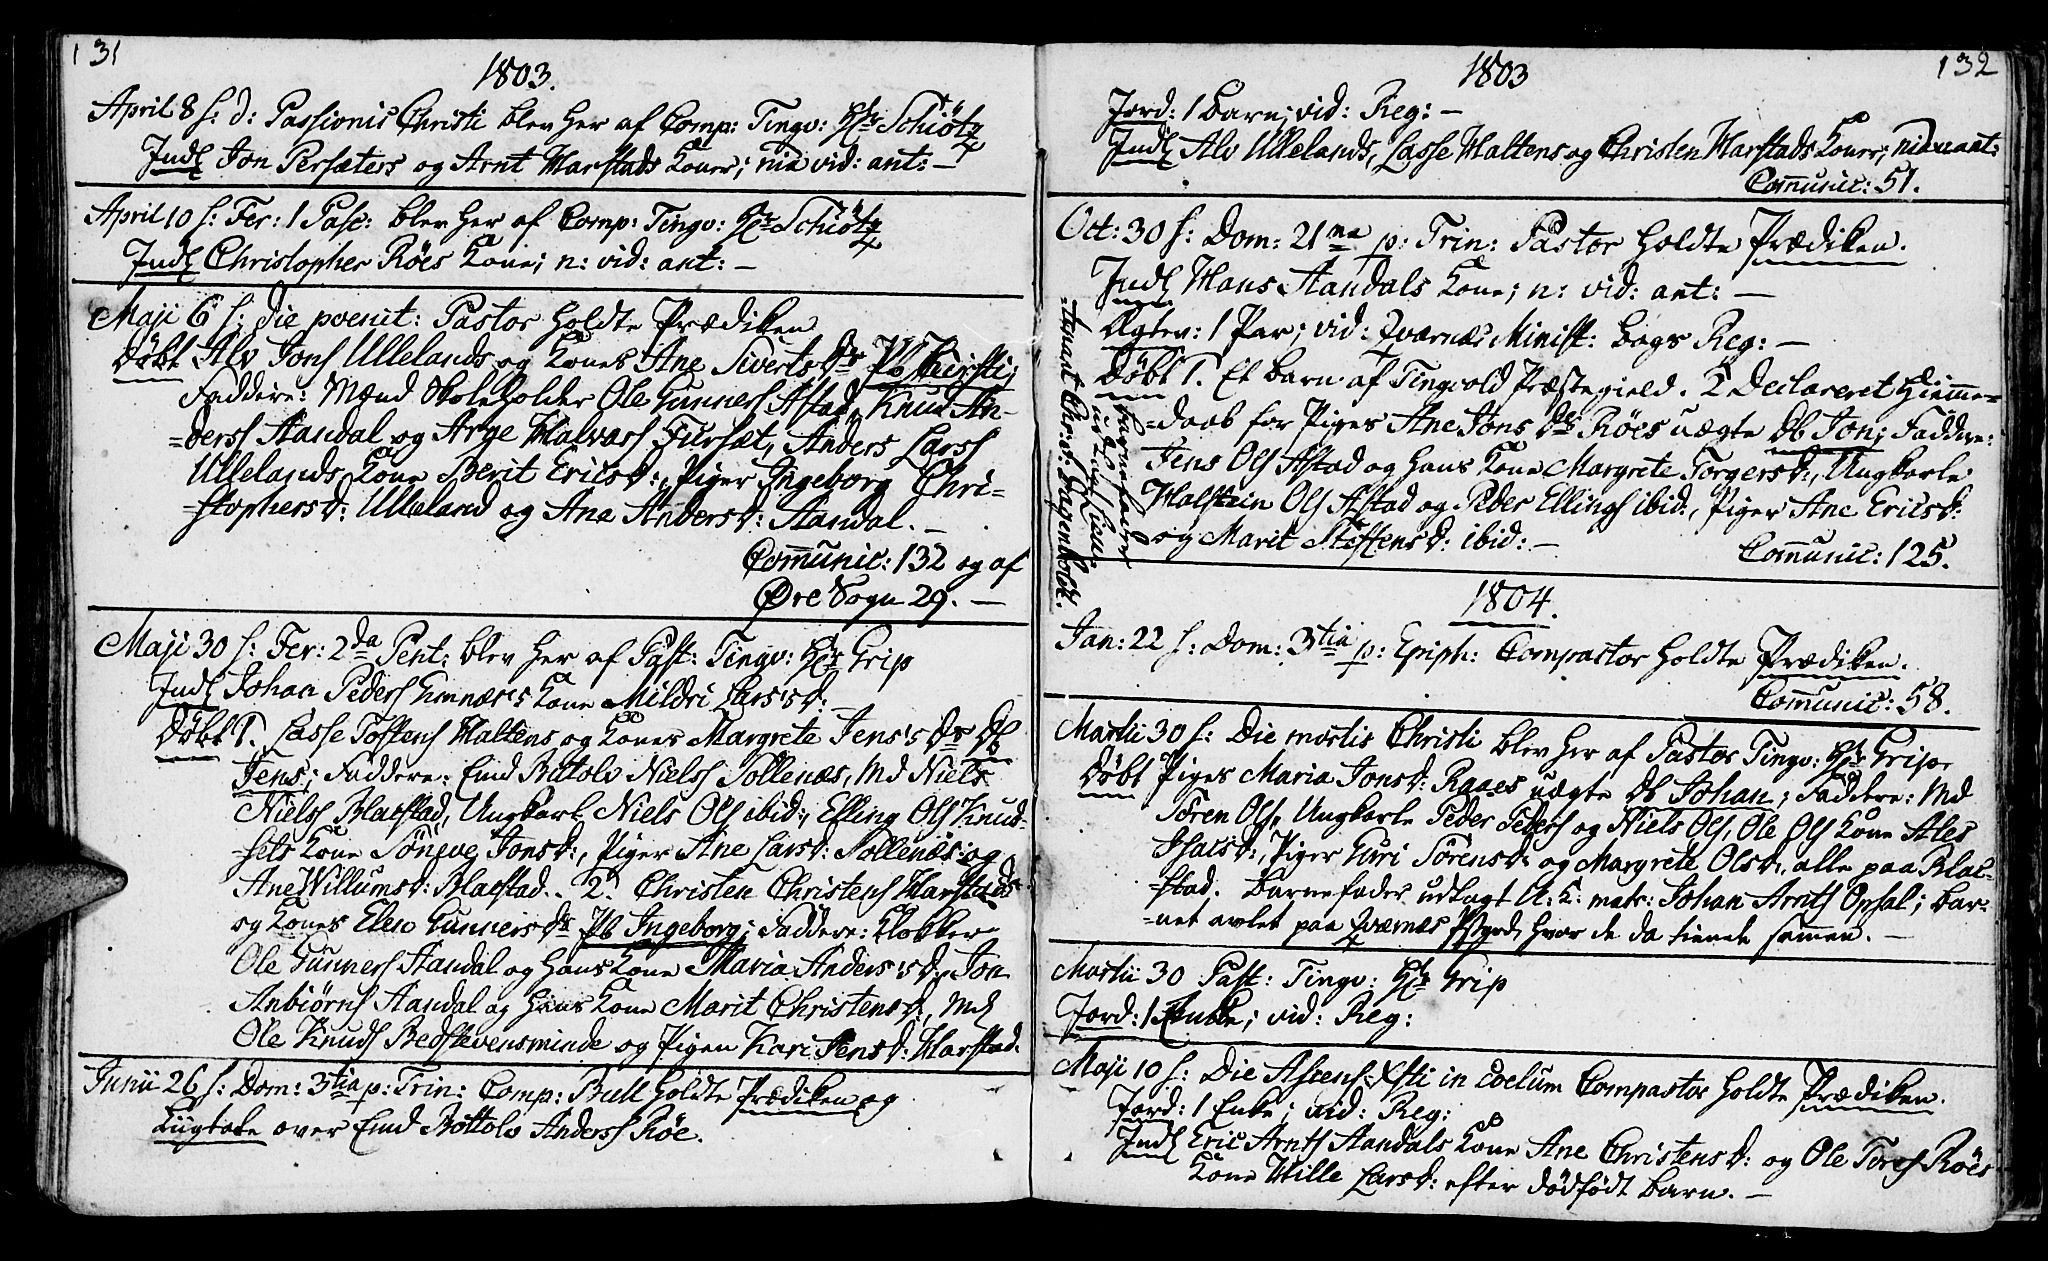 131
1803.
April 8 s: d: Passionis Christi blev her af Comp: Tingv: Hr Schiötz
Indl Jon Persæters og Arnt Harstads Koner; nia vid: ant: —
April 10 s: Fer: 1 Pasc: blev her af Comp: Tingv: Hr Schiötz
Indl Christopher Röes Kone; n: vid: ant: —
Maji 6 s: die poenit: Pastor holdte Prædiken
Döbt Alv Jons Ullelands og Kones Ane Siverts Dr Pb Kirsti;
Faddere: Mænd Skoleholder Ole Gunners Astad, Knud An-
=derss Aandal og Arge Halvars Fursæt, Anders Larss
Ullelands Kone Berit Ericsd:, Piger Ingeborg Chri-
=stophersd: Ulleland og Ane Andersd: Aandal. —
Comunic: 132 og af
Öre Sogn 29. —
Maji 30 s: Fer: 2da Pent: blev her af Past: Tingv: Hr Grip
Indl Johan Peders Gimnæs's Kone Mildri Lars's D: —
Döbt 1. Lasse Tostens Haltens og Kones Margrete Jens's Dr Db
Jens; Faddere: Emd Botolv Nielss Sollenæs, Md Niels
Nielss Blaestad, Ungkarl Niels Ols ibid:, Elling Ols Knud-
=sets Kone Söneve Jonsd:, Piger Ane Larsd: Sollenæs og
Ane Willumsd: Blaestad. 2. Christen Christens Harstads
og Kones Elen Gunners Dr Pb Ingeborg; Faddere: Klokker
Ole Gunners Aandal og hans Kone Maria Anders's D:, Jon
Anbiörns Aandal og hans Kone Marit Christensd:, Md
Ole Knuds Bedstevensminde og Pigen Kari Jensd: Harstad.
Junii 26 s: Dom: 3tia p: Trin: Comp: Bull holdte Prædiken og
Liigtale over Emd Bottolv Anderss Röe.
132
1803
Jord: 1 Barn; vid: Reg: —
Indl Alv Ullelands, Lasse Haltens og Christen Harstads Koner; vid: ant:
Comunic: 51.
Oct: 30 s: Dom: 21ma p: Trin: Pastor holdte Prædiken.
Indl Hans Aandals Kone; n: vid: ant: —
Ægtev: 1 Par; vid: Qværnæs Minist: Bogs Reg: —
Döbt 1. Et Barn af Tingvold Præstegield. 2 Declareret Hiemme-
=daab for Piges Ane Jons Drs Röes uægte Db Jon; Faddere:
Jens Ols Astad og hans Kone Margrete Torgersd:, Ungkarle
Halstein Ols Astad og Peder Ellings ibid:, Piger Ane Ericsd:
og Marit Steffensd: ibid: —
Comunic: 125.
Barnefader
udlagt
1804.
Jan: 22 s: Dom: 3tia p: Epiph: Compastor holdte Prædiken.
Comunic: 58.
Martii 30 s: Die mortis Christi blev her af Pastor Tingv: Hr Grip
Döbt Piges Maria Jonsd: Raaes uægte Db Johan; Faddere: Md
Sören Ols, Ungkarle Peder Peders og Niels Ols, Ole Ols Kone Ales
Isacsd:, Piger Guri Sörensd: og Margrete Olsd:, alle paa Blae-
=stad. Barnefader udlagt U: K: matr: Johan Arnts Opsal; Bar-
=net avlet paa Qværnæs Pgrd, hvor de da tiente sammen. —
Martii 30 Past: Tingv: Hr Grip
Jord: 1 Enke; vid: Reg:
Maji 10 s: Die Ascens: Xsti in coelum Compastor holdte Prædiken.
Jord: 1 Enke; vid: Reg:
Indl Eric Arnts Aandals Kone Ane Christensd: og Ole Tores Röes
Kone Hille Larsd: efter dödfödt Barn. —